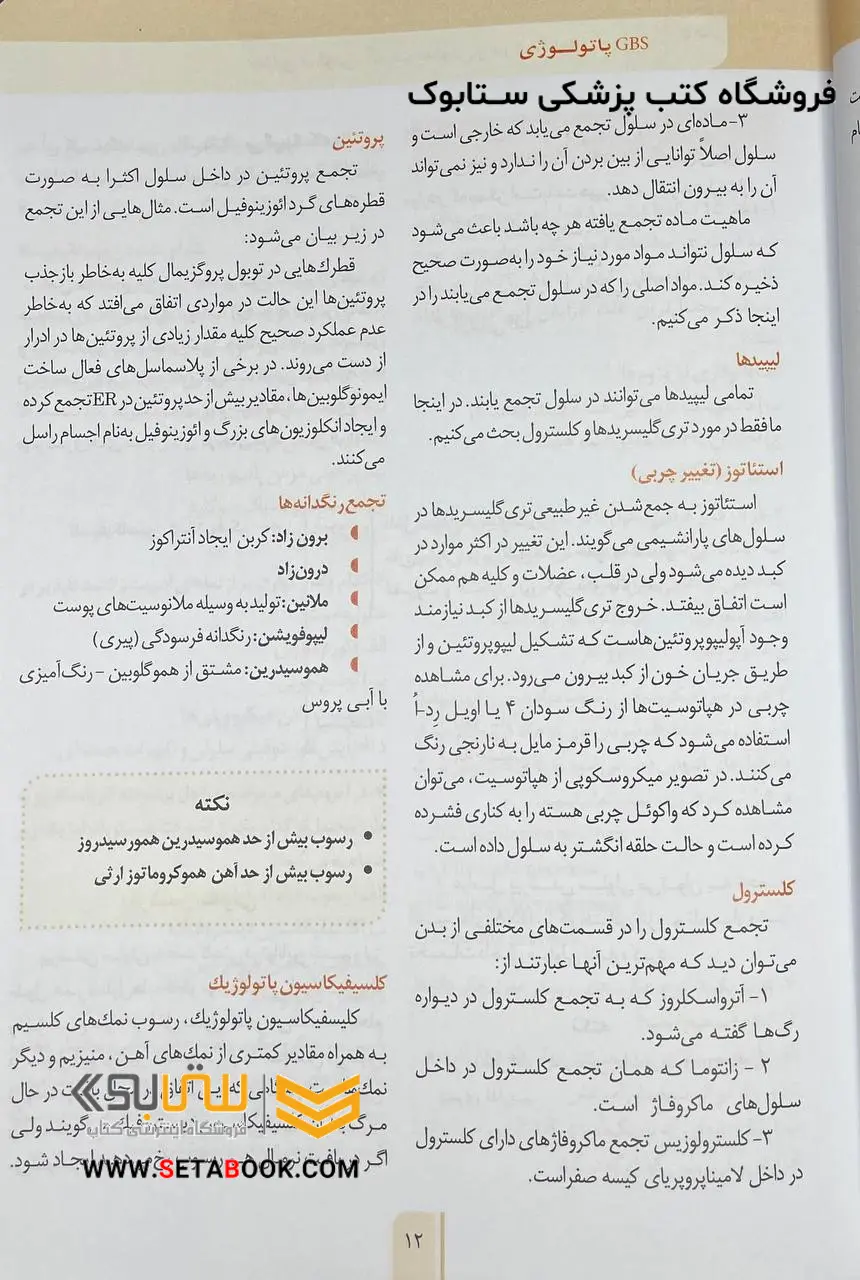 GBS پاتولـوژی
فروشگاه کتب پزشکی ستابوک
۳- ماده‌ای در سلول تجمع می‌یابد که خارجی است و
سلول اصلاً توانایی از بین بردن آن را ندارد و نیز نمی‌تواند
آن را به بیرون انتقال دهد.
ماهیت ماده تجمع یافته هر چه باشد باعث می‌شود
که سلول نتواند مواد مورد نیاز خود را به‌صورت صحیح
ذخیره کند. مواد اصلی را که در سلول تجمع می‌یابند را در
اینجا ذکر می‌کنیم.
لیپیدها
تمامی لیپیدها می‌توانند در سلول تجمع یابند. در اینجا
ما فقط در مورد تری‌گلیسریدها و کلسترول بحث می‌کنیم.
استئاتوز (تغییر چربی)
استئاتوز به جمع‌شدن غیرطبیعی تری‌گلیسریدها در
سلول‌های پارانشیمی می‌گویند. این تغییر در اکثر موارد در
کبد دیده می‌شود ولی در قلب، عضلات و کلیه هم ممکن
است اتفاق بیفتد. خروج تری‌گلیسریدها از کبد نیازمند
وجود آپولیپوپروتئین‌هاست که تشکیل لیپوپروتئین و از
طریق جریان خون از کبد بیرون می‌رود. برای مشاهده
چربی در هپاتوسیت‌ها از رنگ سودان ۴ یا اویل رِد-اُ
استفاده می‌شود که چربی را قرمز مایل به نارنجی رنگ
می‌کنند. در تصویر میکروسکوپی از هپاتوسیت، می‌توان
مشاهده کرد که واکوئل چربی هسته را به کناری فشرده
کرده است و حالت حلقه انگشتر به سلول داده است.
کلسترول
تجمع کلسترول را در قسمت‌های مختلفی از بدن
می‌توان دید که مهم‌ترین آنها عبارتند از:
۱- آترواسکلروز که به تجمع کلسترول در دیواره
رگ‌ها گفته می‌شود.
۲ - زانتوما که همان تجمع کلسترول در داخل
سلول‌های ماکروفاژ است.
۳- کلسترولوزیس تجمع ماکروفاژهای دارای کلسترول
در داخل لامیناپروپریای کیسه صفراست.
پروتئین
تجمع پروتئین در داخل سلول اکثرا به صورت
قطره‌های گرد ائوزینوفیل است. مثال‌هایی از این تجمع
در زیر بیان می‌شود:
قطرك‌هایی در توبول پروگزیمال کلیه به‌خاطر بازجذب
پروتئین‌ها این حالت در مواردی اتفاق می‌افتد که به‌خاطر
عدم عملکرد صحیح کلیه مقدار زیادی از پروتئین‌ها در ادرار
از دست می‌روند. در برخی از پلاسماسل‌های فعال ساخت
ایمونوگلوبین‌ها، مقادیر بیش از حد پروتئین در ER تجمع کرده
و ایجاد انکلوزیون‌های بزرگ و ائوزینوفیل به‌نام اجسام راسل
می‌کنند.
تجمع رنگدانه‌ها
برون زاد: کربن ایجاد آنتراکوز
درون‌زاد
ملانین: تولید به وسیله ملانوسیت‌های پوست
لیپوفویشن: رنگدانه فرسودگی (پیری)
هموسیدرین: مشتق از هموگلوبین - رنگ‌آمیزی
با آبی پروس
نکته
• رسوب بیش از حد هموسیدرین همورسیدروز
• رسوب بیش از حد آهن هموکروماتوز ارثی
کلسیفیکاسیون پاتولوژیك
کلیسفیکاسیون پاتولوژیك، رسوب نمك‌های کلسیم
به همراه مقادیر کمتری از نمك‌های آهن، منیزیم و دیگر
در حال
ستابوک
فروشگاه اینترنتی کتاب
گویند ولی
ایجاد شود.
WWW.SETABOOK.COM
۱۲